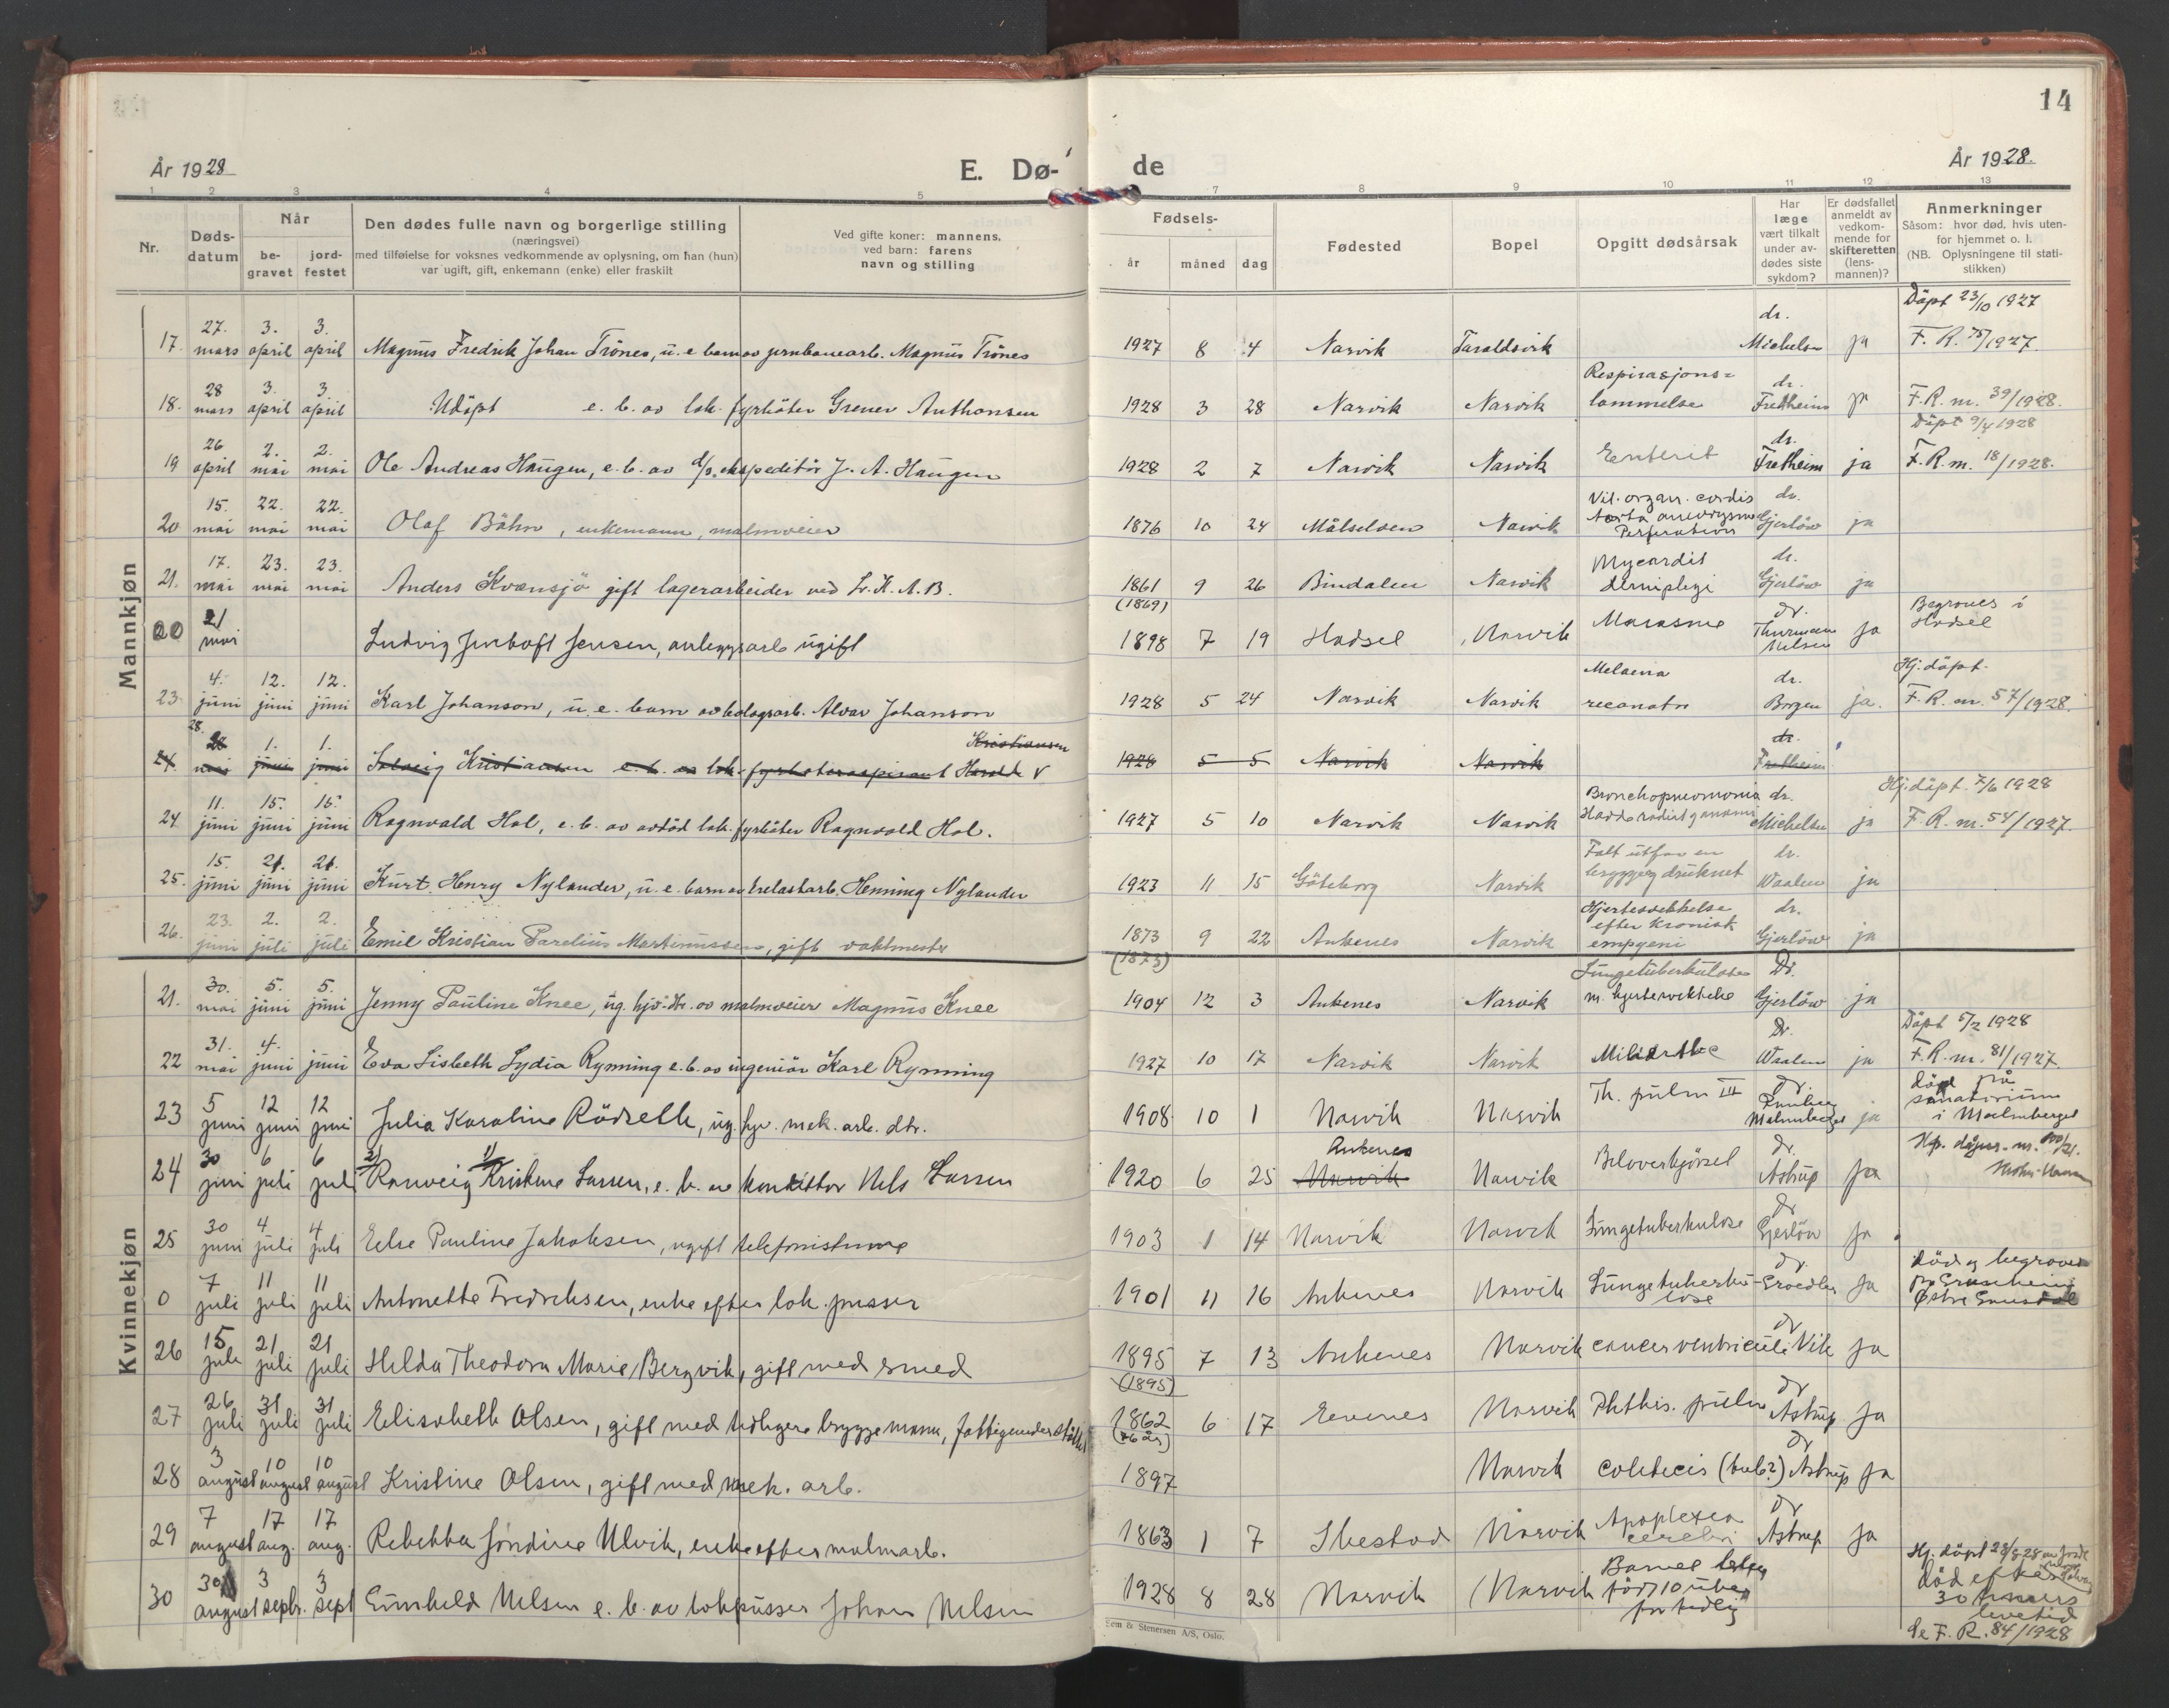 14
År 1928
E. Dø-
de
År 1928.
1 2 3 4 5 7 8 9 10 11 12 13
Nr.
Døds-
datum
Når
be-
gravet
jord-
festet
Den dødes fulle navn og borgerlige stilling
(næringsvei)
med tilføielse for voksnes vedkommende av oplysning, om han (hun)
var ugift, gift, enkemann (enke) eller fraskilt
Ved gifte koner: mannens,
ved barn: farens
navn og stilling
Fødsels-
år måned dag
Fødested
Bopel
Opgitt dødsårsak
Har
læge
vært tilkalt
under av-
dødes siste
sykdom?
Er dødsfallet
anmeldt av
vedkom-
mende for
skifteretten
(lens-
mannen)?
Anmerkninger
Såsom: hvor død, hvis uten-
for hjemmet o. l.
(NB. Oplysningene til stati-
stikken)
Mannkjøn
17. 27. mars 3. april 3. april Magnus Fredrik Johan Trönes, u. e. barn av jernbanearb. Magnus Trönes 1927 8 4 Narvik Taraldsvik dr. Michelsen ja Döpt 23/10 1927 F. R. 75/1927.
18. 28 mars 3. april 3. april Udöpt e. b. av lok. fyrböter Grener Anthonsen 1928 3 28 Narvik Narvik Respirasjons= lammelse dr. Fretheim ja F. R. nr. 39/1928.
19 26 april 2. mai 2. mai Ole Andreas Haugen, e. b. av d/s. ekspeditör J. A. Haugen 1928 2 7 Narvik Narvik Enterit dr. Fretheim ja Döpt 9/4 1928 F. R. nr. 18/1928.
20 15. mai 22. mai 22. mai Olaf Böhn, enkemann, malmveier 1876 10 24 Målselven Narvik Vit. organ. cordis Aorta aneurysme Perforation dr. Gjerlöw ja
21. 17. mai 23. mai 23. mai Anders Kvansjö gift lagerarbeider ved L. K. A. B. 1861 (1869) 9 26 Bindalen Narvik Mycardit Hemiplegi dr. Gjerlöw ja
00 21 mai Ludvig Jentoft Jensen, anleggsarb ugift 1898 7 19 Hadsel Narvik Marasme dr. Thurmann Nielsen ja Begraves i Hadsel
23. 4. juni 12. juni 12. juni Karl Johanson, u. e. barn av bolagsarb. Alvar Johanson 1928 5 24 Narvik Narvik Melaena neonator dr. Borgen ja. Hj. döpt. F. R. nr. 57/1928.
24. 28. mai 1. juni 1. juni Solveig Kristiansen e. b. av lok. fyrböteraspirant Harald Kristiansen 1928 5 5 Narvik Narvik dr. Fretheim
24 11. juni 15. juni 15. juni Ragnvald Hol, e. b. av avdöd lok. fyrböter Ragnvald Hol. 1927 5 10 Narvik Narvik Bronchopneumonia dr. Michelsen ja Hj. döpt. 7/6 1928 F. R. nr. 54/1927.
25. 15. juni 21. juni 21. juni Kurt Henry Nylander, u. e. barn av trelastarb. Henning Nylander 1923 11 15 Göteborg Narvik Falt utfor en brygge og druknet dr. Waalen ja
26. 23. juni 2. juli 2. juli Emil Kristian Parelius Martinussen, gift vaktmester 1873 (1873) 9 22 Ankenes Narvik Hjertesvekkelse efter kronisk empyem dr. Gjerlöw ja
Kvinnekjøn
21. 30. mai 5. juni 5. juni Jenny Pauline Knee, ug. hjv. dtr. av malmveier Magnus Knee 1904 12 3 Ankenes Narvik Lungetuberkulose m. hjertesvekkelse Dr. Gjerlöw ja
22 31. mai 4. juni juni Eva Lisbeth Lydia Rynning e. b. av ingeniör Karl Rynning 1927 10 17 Narvik Narvik Miliærtbc Dr. Waalen ja Döpt 5/2 1928 F. R. nr. 81/1927.
23 5 juni 12 juni 12 juni Julia Karoline Rödseth, ug. hjv. mek. arb. dtr. 1908 10 1 Narvik Narvik Tb. pulm III dr. Malmberget ja död på sanatorium i Malmberget
24 30 juni 6 juli 6 juli 2) Ranveig 1) Kristine Larsen, e. b. av konditor Nels Larsen 1920 6 25 Ankenes Narvik Narvik Biloverkjörsel dr. Astrup ja
25 30 juni 4 juli 4 juli Else Pauline Jakobsen, ugift telefonistinne 1903 1 14 Narvik Narvik Lungetuberkulose dr Gjerlöw ja
0 7 juli 11 juli 11 juli Antonette Fredriksen, enke efter lok. pusser 1901 11 16 Ankenes Narvik Lungetuberku- lose dr. ja död og begravet på Grusheim Østre Gausdal
26 15 juli 21 juli 21 juli Helda Theodora Marie Bergvik, gift med smed 1895 (1895) 7 13 Ankenes Narvik cancer ventriculi dr Vik ja
27 26 juli 31 juli 31 juli Elisabeth Olsen, gift med tidligere bryggemann, fattigunderstöttet 1862 (66 år) 6 17 Evenes Narvik Phthis. pulm dr Astrup ja
28 3 august 10 august 10 august Kristine Olsen, gift med mek. arb. 1897 Narvik (tub?) dr Astrup ja
29 7 august 17 aug. 17 aug. Rebekka Jondine Ulvik, enke efter malmarb. 1863 1 7 Ibestad Narvik Apoplexia cerebri dr Astrup ja
30 30 august 3 septr. 3 sept Gunhild Nilsen e. b. av lokpusser Johan Nilsen 1928 8 28 Narvik Narvik Barnet født 10 uker for tidlig Hj. döpt 28/8 28 död efter 30 timers levetid se F. R. 84/1928
Sem & Stenersen A/S, Oslo.